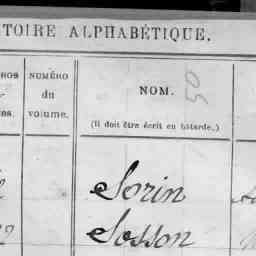 TOIRE ALPHABÉTIQUE.
ROS NUMÉRO
du
volume.
NOM.
(Il doit être écrit en bâtarde.)
50
Sorin
Sosson